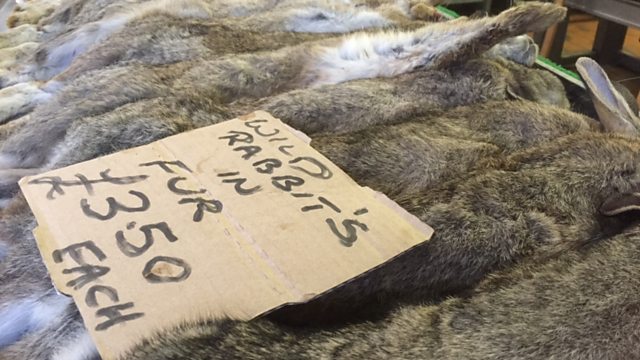 WILD
RABBIT'S
IN
FUR
£3.50
EACH